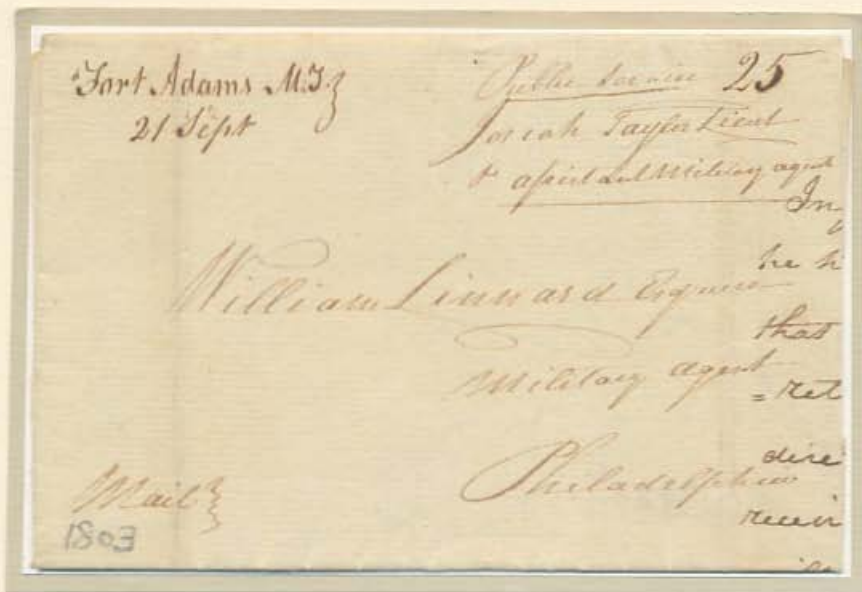 Fort Adams M.T.
21 Sept
Public Service 25
Josiah Taylor Lieut
& assistant Military agent
William Linnard Esquire
Military agent
Philadelphia
Mail
1803
In
he h
that
= ret
dire
receiv